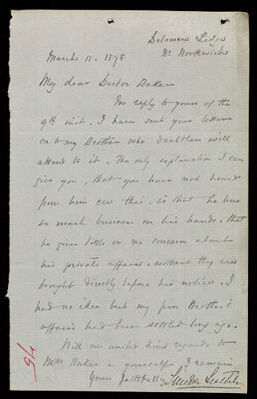 Delamere Lodge
Nr. Northwich
March 11 - 1878
My dear Doctor Baker
In reply to yours of the
9th inst. I have sent your letter
on to my Brother who doubtless will
attend to it. The only explanation I can
give you, that you have not heard
from him ere this, is that he has
so much business on his hands, that
he gives little or no concern about
his private affairs, without they are
brought directly before his notice. I
had no idea but my poor Brother's
affairs had been settled long ago.
With our united kind regards to
Mrs Baker & yourself, I remain
Yours faithfully